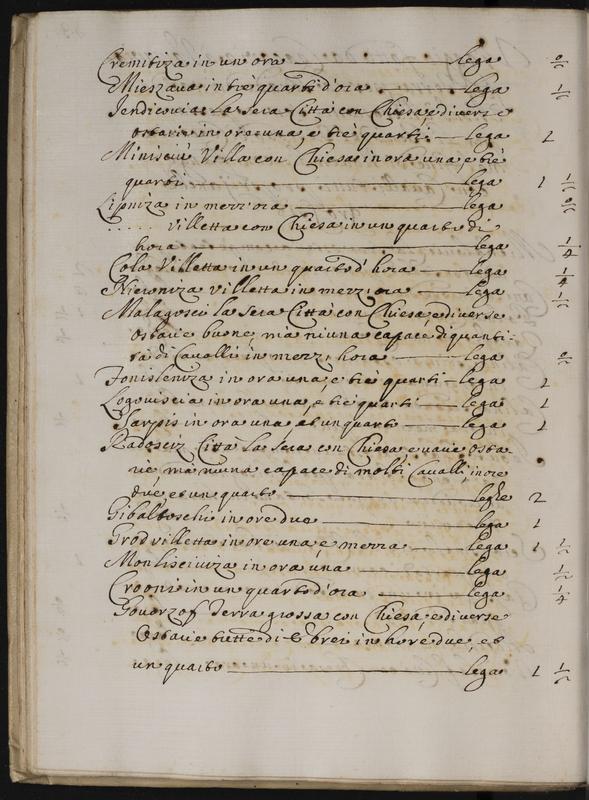 Cremitiza in un ora lega
Mieszava in trè quarti d'ora lega 1/2
Jendicovia la sera Città con Chiesa, e diverse
ostarie in ore una, e trè quarti lega 1
Minisciù Villa con Chiesa in ora una, e trè
quarti lega 1 1/2
Lipniza in mezz'ora lega
..... villetta con Chiesa in un quarto di
hora lega 1/4
Cola Villetta in un quarto d'hora lega 1/4
Nieroniza villetta in mezz'ora lega 1/2
Malagosci la sera Città con Chiesa, e diverse
ostarie buone, mà niuna capace di quanti:
tà di Cavalli in mezz'hora lega
Jonisleniza in ora una, e trè quarti lega 1
Logoviscia in ora una, e trè quarti lega 1
Sarpis in ora una et un quarto lega 1
Radosciz Città la sera con Chiesa, e varie osta:
rie, mà niuna capace di molti Cavalli, in ore
due, et un quarto leghe 2
Gibaltoschi in ore due lega 1
Grod villetta in ore una, e mezza lega 1 1/2
Monlisciviza in ora una lega 1/2
Crooni in un quarto d'ora lega 1/4
Govorzof Terra grossa con Chiesa, e diverse
Ostarie tutte di Ebrei in hore due, et
un quarto lega 1 1/2